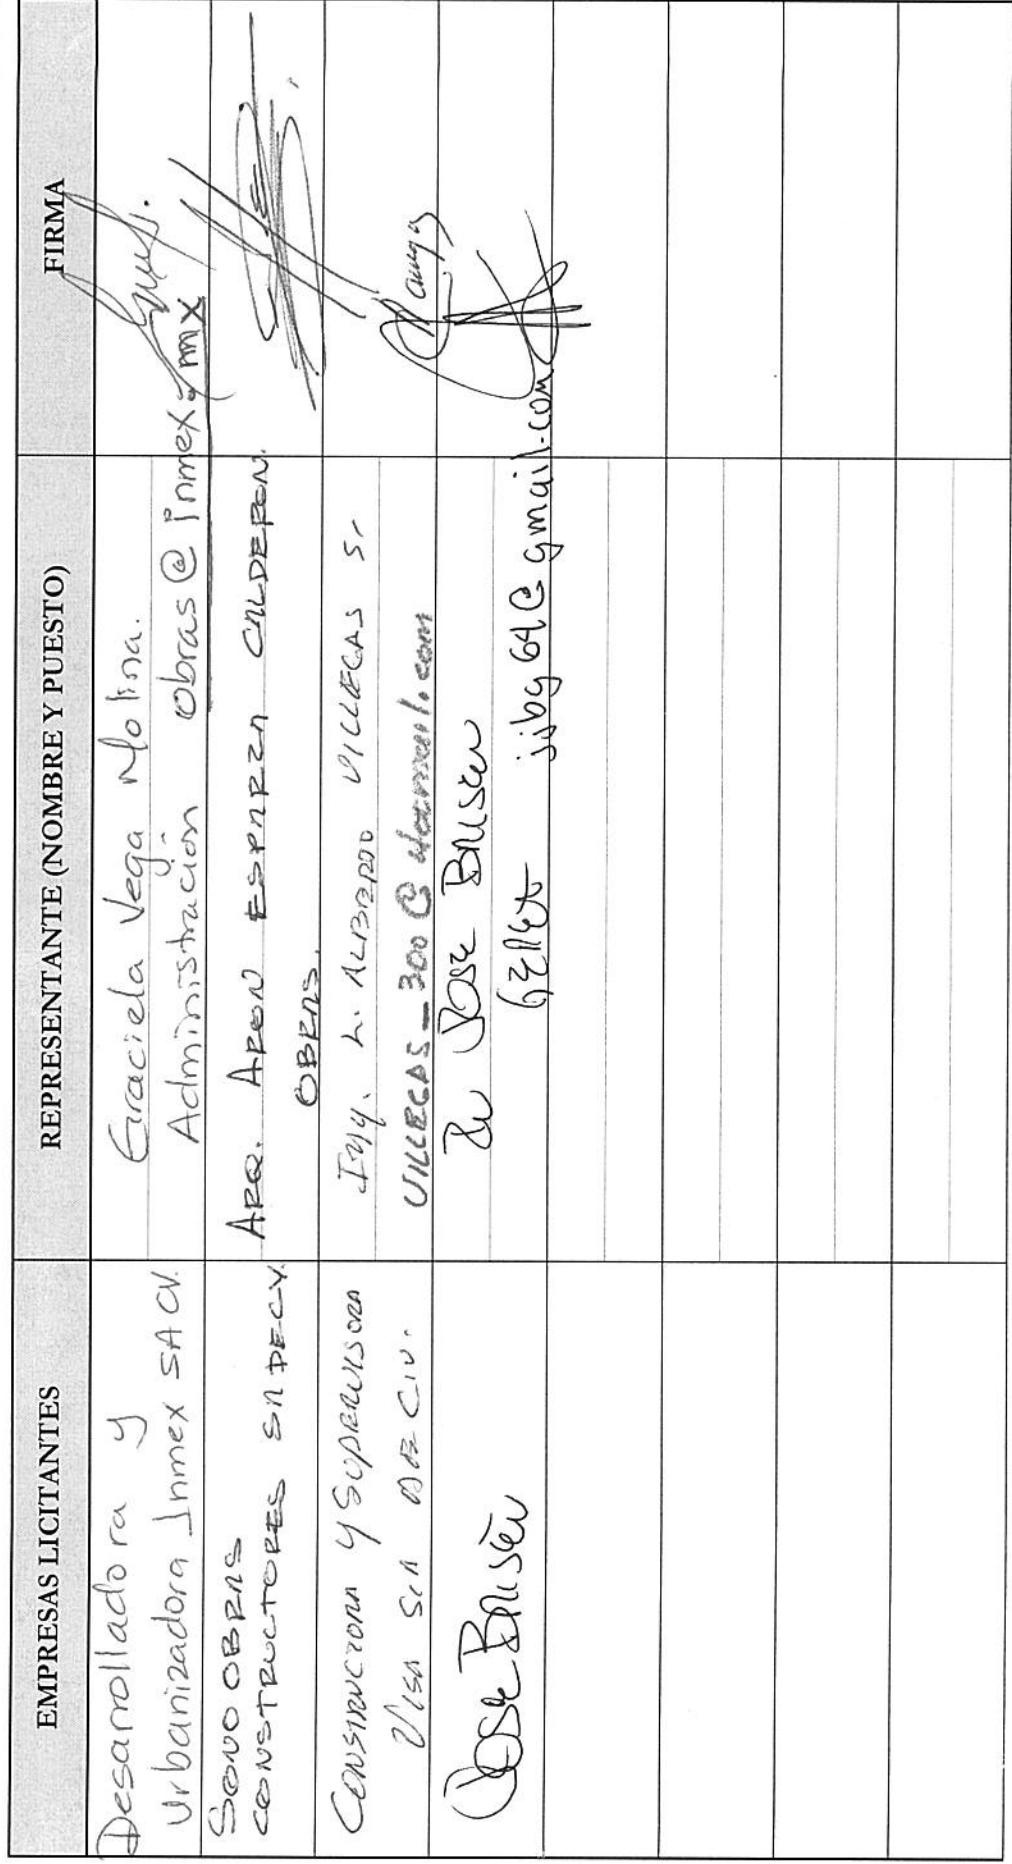 EMPRESAS LICITANTES
REPRESENTANTE (NOMBRE Y PUESTO)
FIRMA
Desarrolladora y
Urbanizadora Inmex SA CV.
Graciela Vega Molina.
Administración obras@inmex.mx
SONO OBRAS
CONSTRUCTORES SA DE CV.
ARQ. ARON ESPARZA CALDERON.
OBRAS.
CONSTRUCTORA Y SUPERVISORA
VISA S.A DE C.V.
Ing. L. ALBERTO VILLEGAS S.
VILLEGAS_300@hotmail.com
Jose
Jose
jjbg64@gmail.com